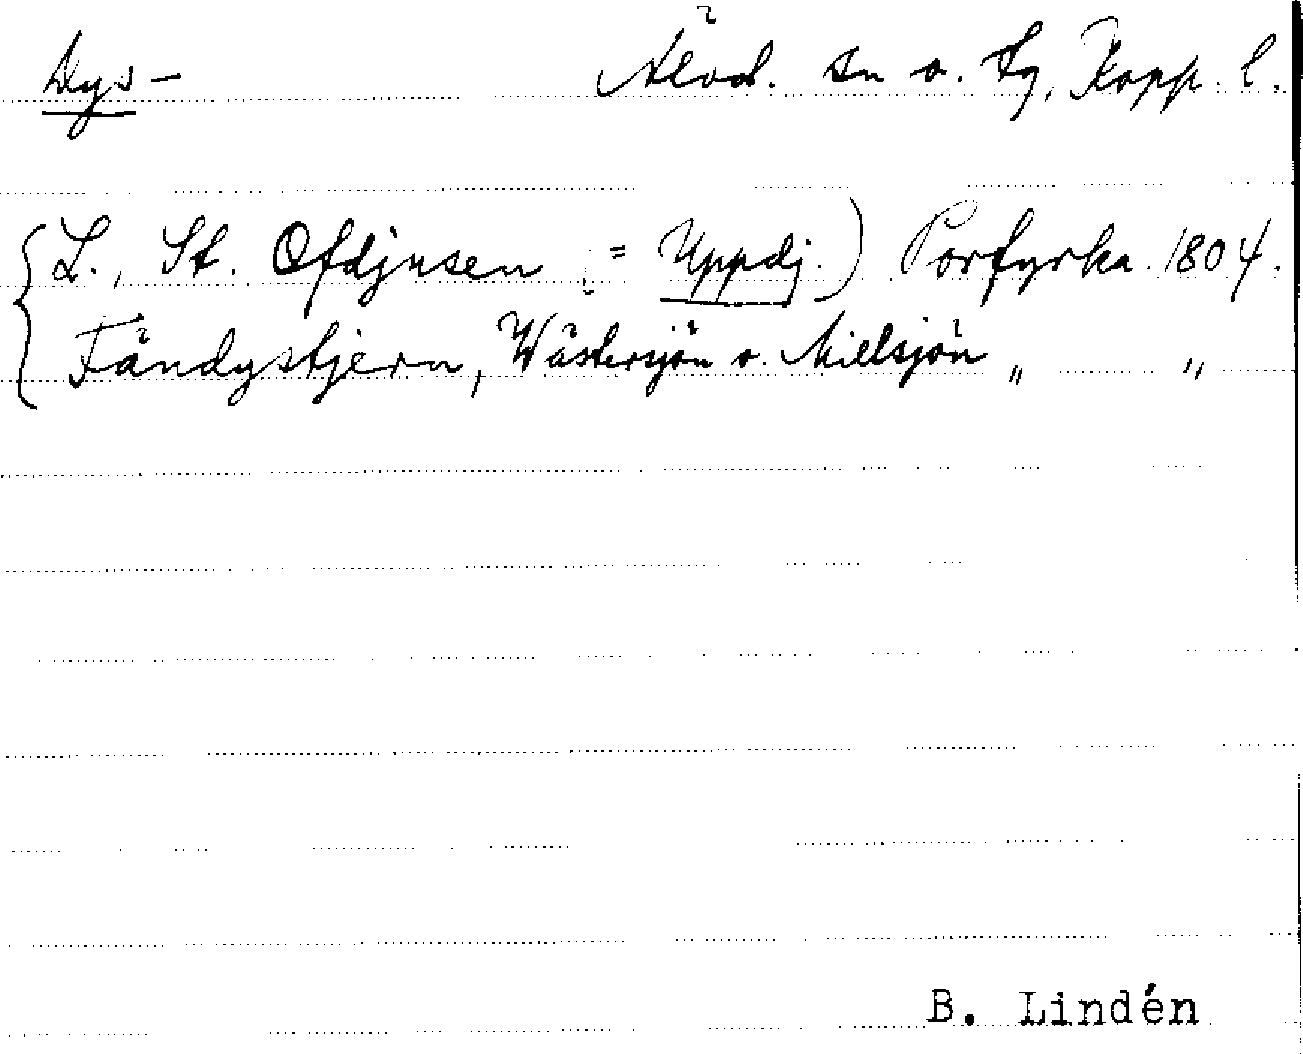 Dys- Älvd. sn o. tg, Kopp. l.
L., St. Ofdjusen (= Uppdj.) Porfyrka. 1804.
Fändystjern, Wästersjön o. Millsjön " "
B. Lindén